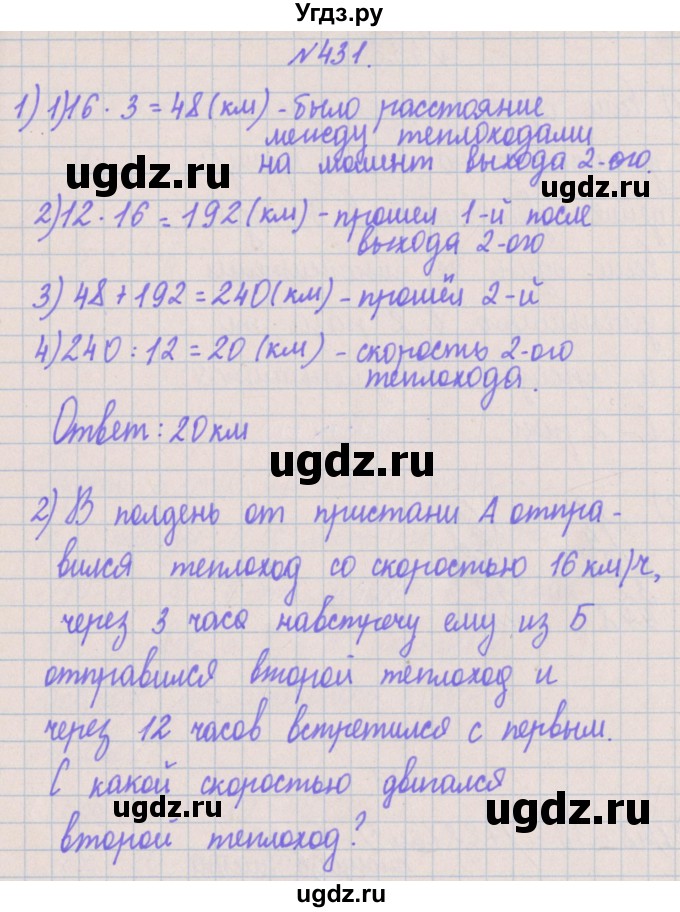 Угдз.ру
№431.
1) 1)16 · 3 = 48 (км) - было расстояние
между теплоходами
на момент выхода 2-ого.
ugdz.ru
ugdz.ru
2) 12 · 16 = 192 (км) - прошел 1-й после
выхода 2-ого
3) 48 + 192 = 240 (км) - прошёл 2-й
4) 240 : 12 = 20 (км) - скорость 2-ого
теплохода.
Ответ: 20 км
ugdz.ru
2) В полдень от пристани А отпра-
вился теплоход со скоростью 16 км/ч,
через 3 часа навстречу ему из Б
отправился второй теплоход и
через 12 часов встретился с первым.
С какой скоростью двигался
ugdz.ru
ugdz.ru
второй теплоход?
ugdz.ru